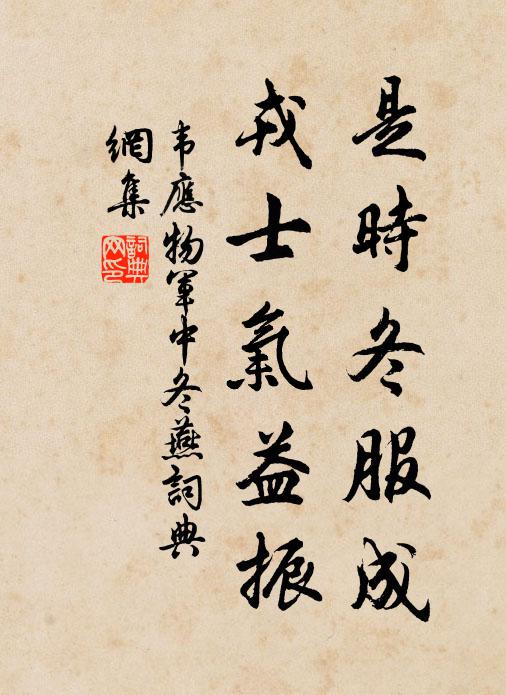 是時冬服成
戎士氣益振
韦應物軍中冬燕詞典
網集
詞典网印